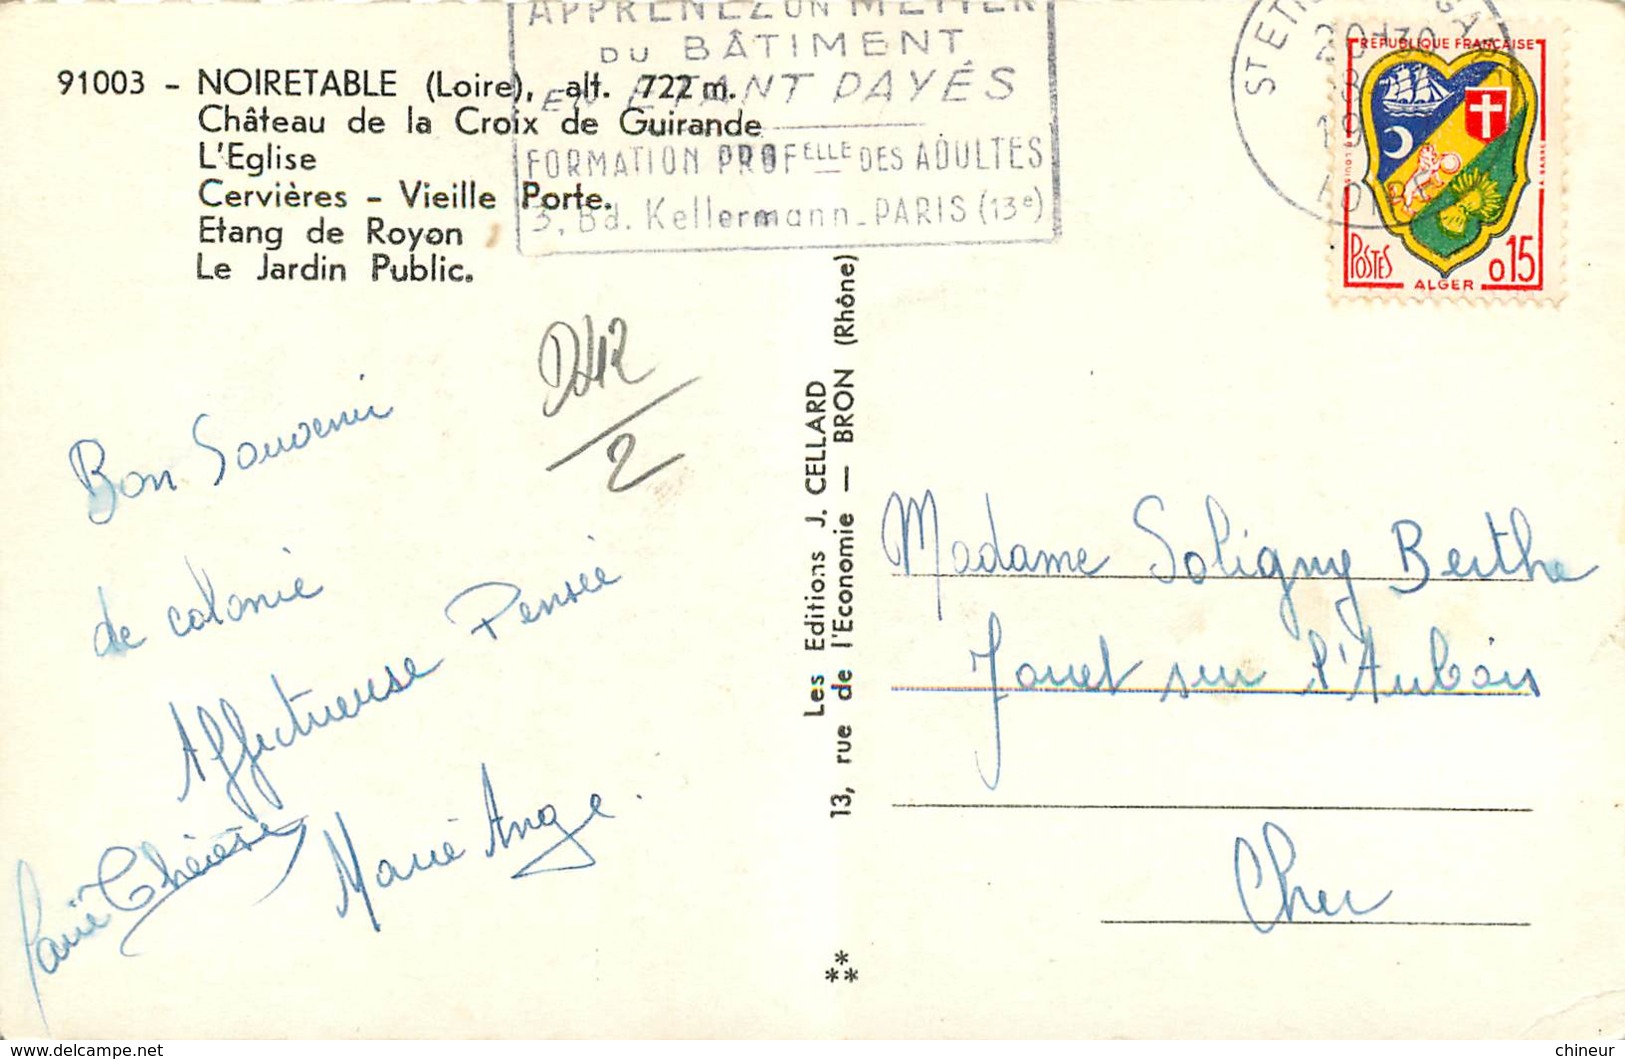 APPRENEZ UN METIER
DU BÂTIMENT
EN ETANT PAYÉS
FORMATION PROFELLE DES ADULTES
3, Bd. Kellermann - PARIS (13e)
91003 - NOIRETABLE (Loire), alt. 722 m.
Château de la Croix de Guirande
L'Eglise
Cervières - Vieille Porte.
Etang de Royon
Le Jardin Public.
ST ETIENNE GARE
20-30
19
REPUBLIQUE FRANÇAISE
POSTES
0,15
ALGER
2
Bon Souvenir
de colonie
Affectueuse Pensée
Marie Ange.
Marie Thérèse
Les Editions J. CELLARD
13, rue de l'Economie — BRON (Rhône)
Madame Soligny Berthe
Jouet sur l'Aubois
Cher
chineur